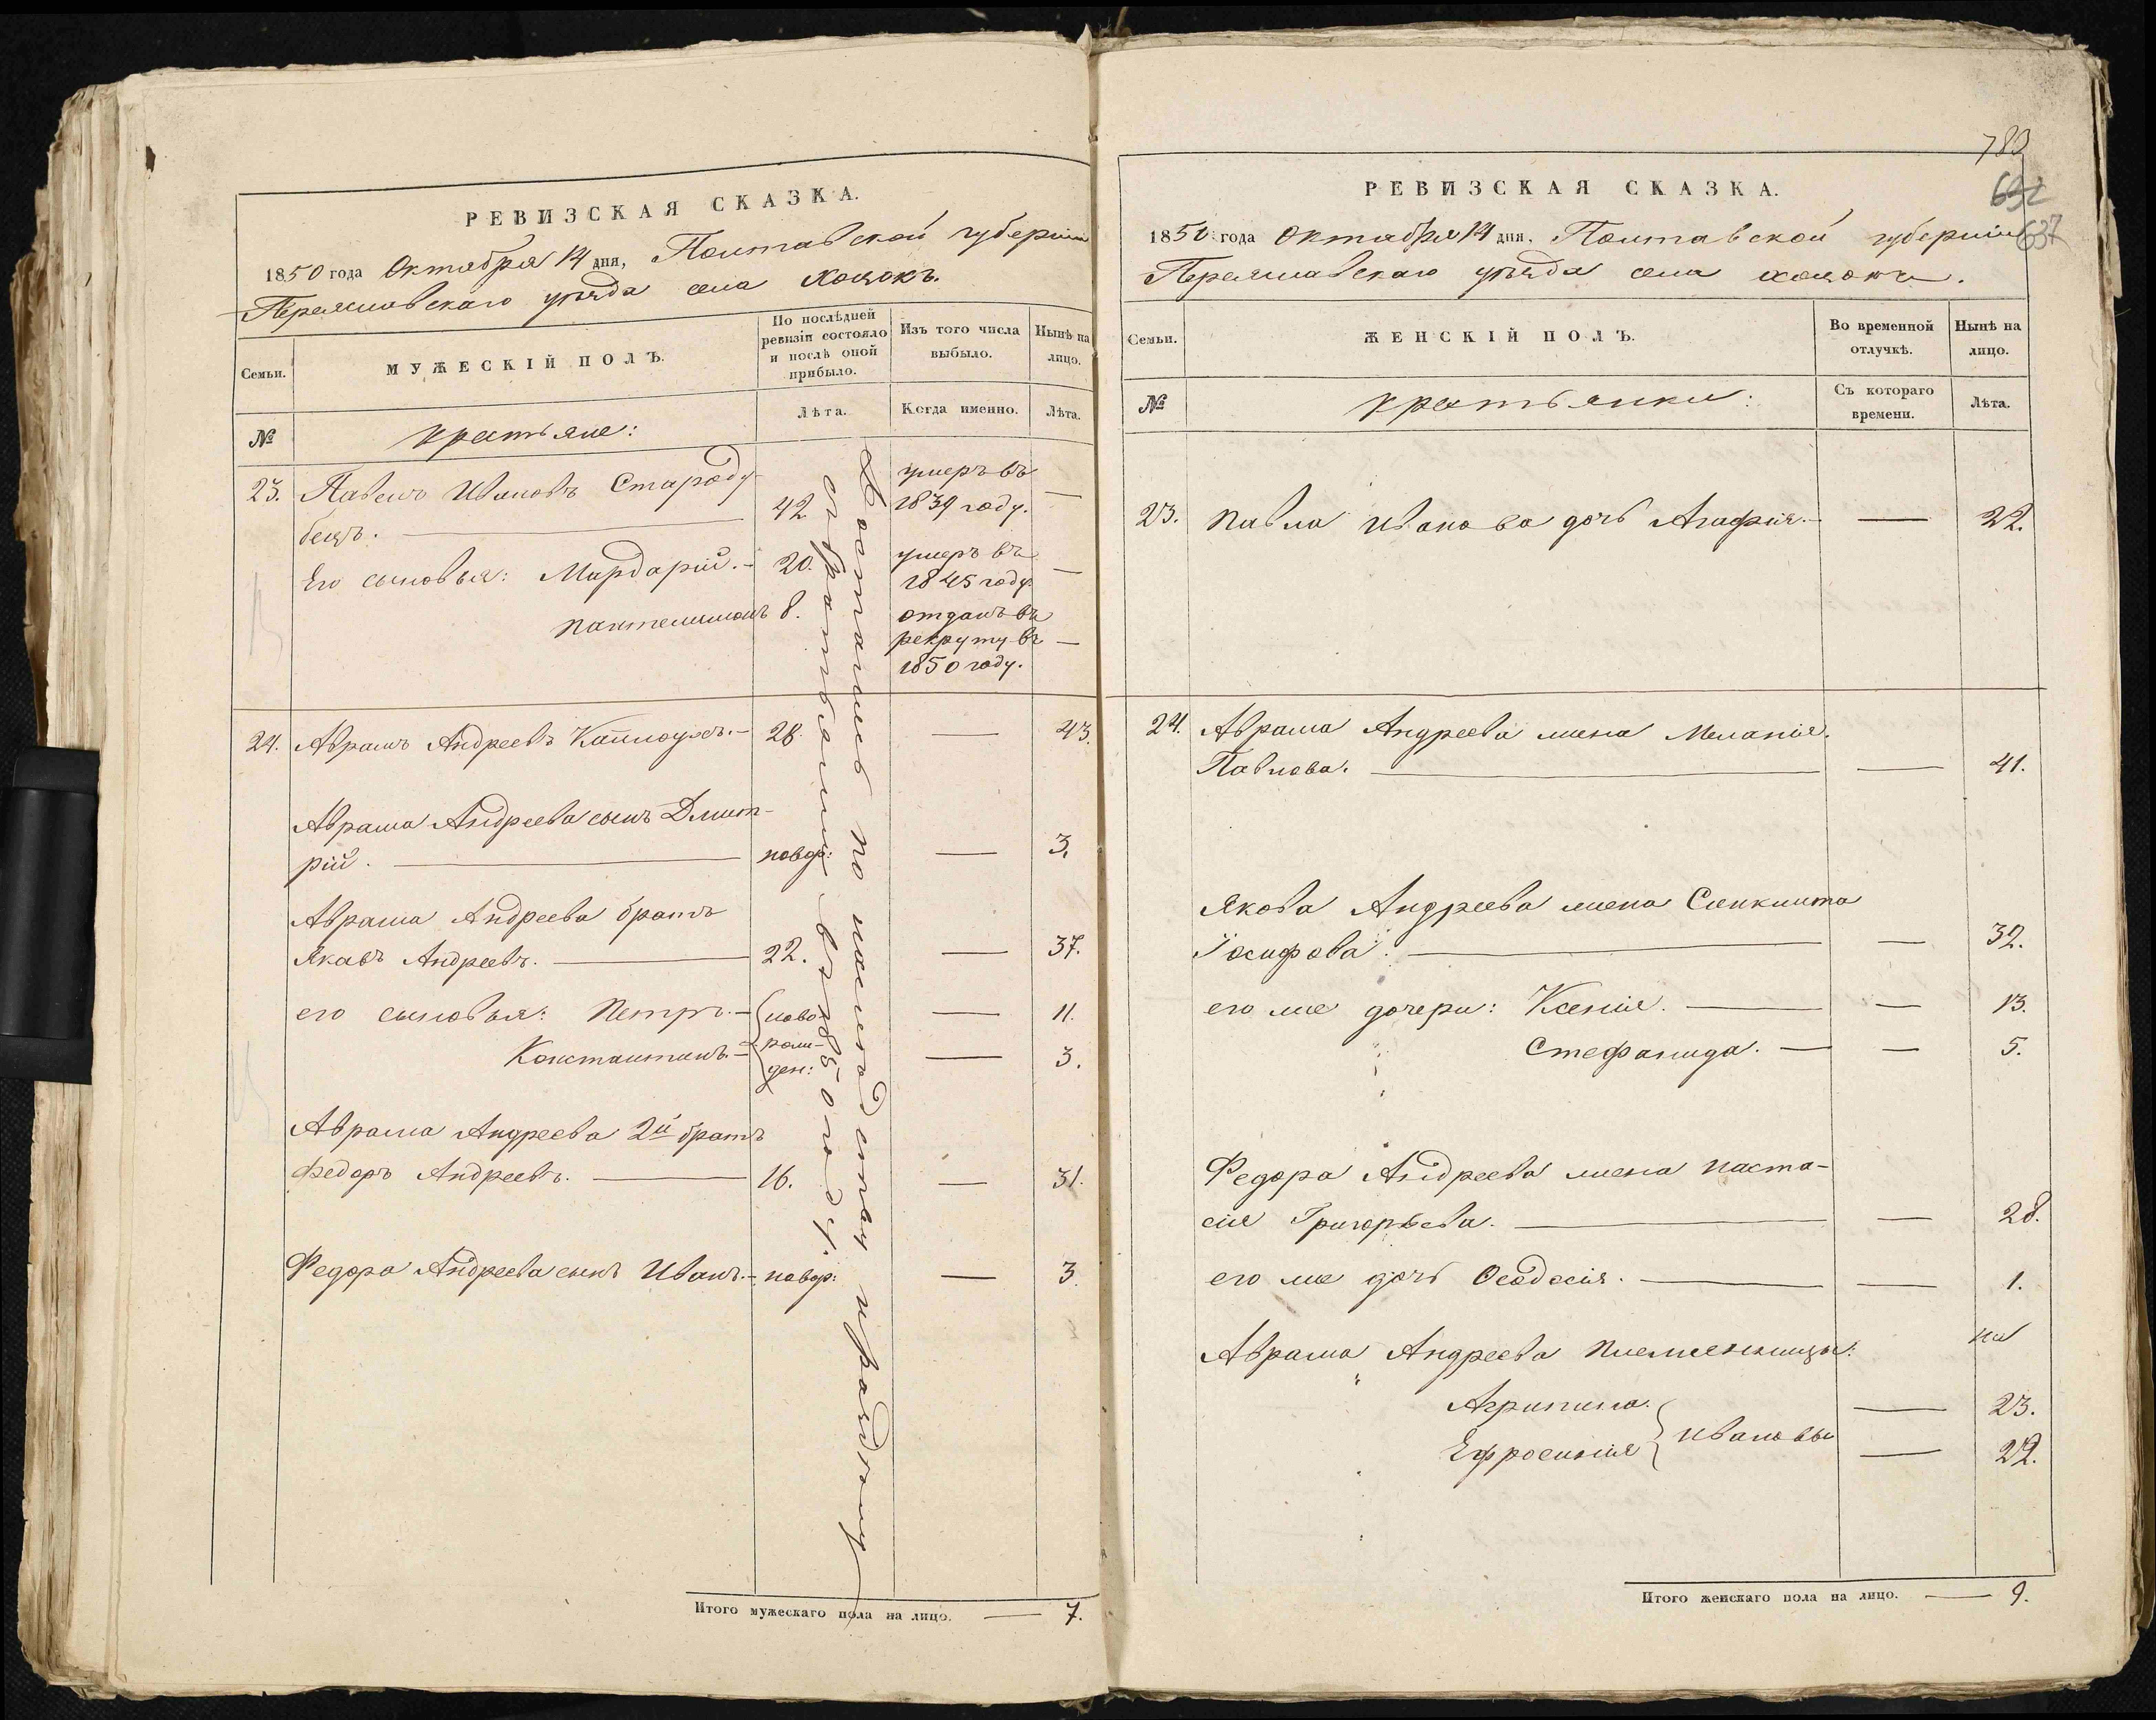 РЕВИЗСКАЯ СКАЗКА.
1850 года Октября 14 дня, Полтавской губерніи
Переяславскаго уѣзда села Хоцокъ.
Семьи.
МУЖЕСКІЙ ПОЛЪ.
По послѣдней ревизіи состояло и послѣ оной прибыло.
Изъ того числа выбыло.
Нынѣ на лицо.
№
крестьяне:
Лѣта.
Когда именно.
Лѣта.
23. Павелъ Ивановъ Староду-
бецъ. — 42 умеръ въ 1839 году. —
Его сыновья: Мардарій. — 20. умеръ въ 1845 году. —
Пантелимонъ 8. отданъ въ рекруты въ 1850 году. —
24. Аврамъ Андреевъ — 28. — 43.
Аврама Андреева сынъ Дмит-
рій. — новор: — 3.
Аврама Андреева братъ
Яковъ Андреевъ. — 22. — 37.
его сыновья: Петръ. — ново — 11.
Константинъ. — рож-ден: — 3.
Аврама Андреева 2й братъ
Федоръ Андреевъ. — 16. — 31.
Федора Андреева сынъ Иванъ. — новор: — 3.
Итого мужескаго пола на лицо. — 7.
783
692
637
РЕВИЗСКАЯ СКАЗКА.
1850 года Октября 14 дня, Полтавской губерніи
Переяславскаго уѣзда села Хоцокъ.
Семьи.
ЖЕНСКІЙ ПОЛЪ.
Во временной отлучкѣ.
Нынѣ на лицо.
№
крестьянки:
Съ котораго времени.
Лѣта.
23. Павла Иванова дочь Агафія. — — 22.
24. Аврама Андреева жена Меланія
Павлова. — — 41.
Якова Андреева жена Синклита
Іосифова. — — 32.
его же дочери: Ксенія. — — 13.
Стефанида. — — 5.
Федора Андреева жена Наста-
сія Григорьева. — — 28.
его же дочь Феодосія. — — 1.
Аврама Андреева племенницы:
Агрипина. — 23.
Ивановы
Ефросинія — 22.
Итого женскаго пола на лицо. — 9.